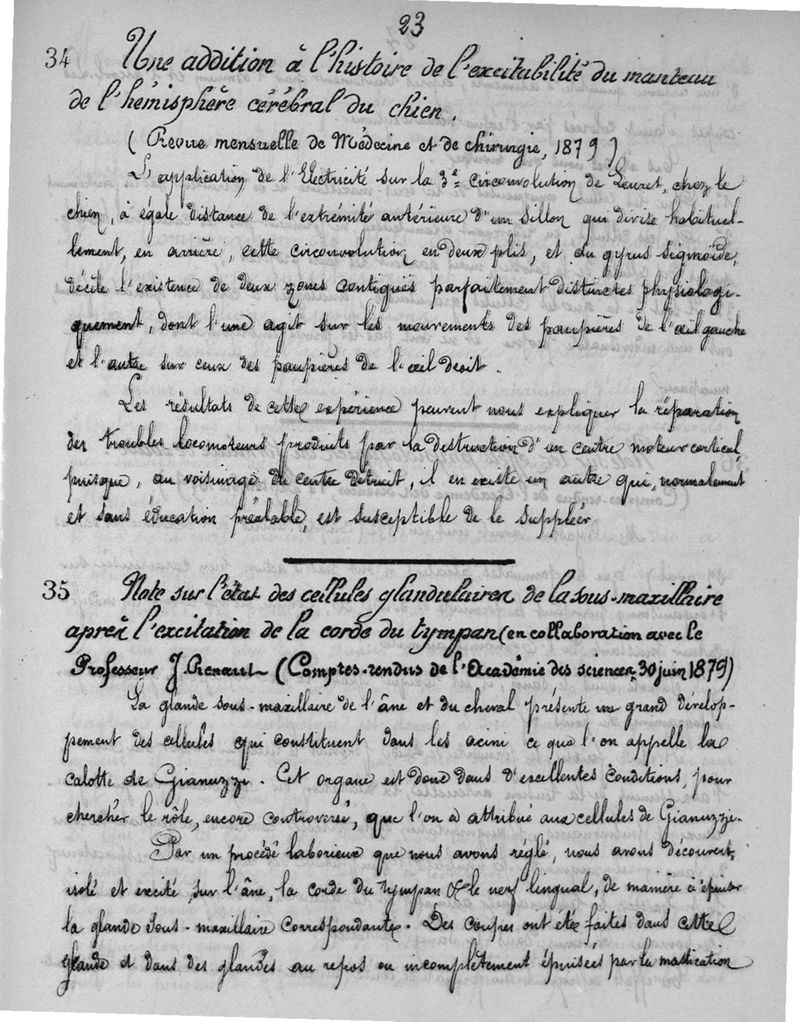 23
34 Une addition à l'histoire de l'excitabilité du manteau
de l'hémisphère cérébral du chien.
(Revue mensuelle de Médecine et de chirurgie, 1879)
L'application de l'Electricité sur la 3e circonvolution de Leuret, chez le
chien, à égale distance de l'extrémité antérieure d'un sillon qui divise habituel-
lement, en arrière, cette circonvolution en deux plis, et du gyrus sigmoïde,
décèle l'existence de deux zones contiguës parfaitement distinctes physiologi-
quement, dont l'une agit sur les mouvements des paupières de l'œil gauche
et l'autre sur ceux des paupières de l'œil droit.
Les résultats de cette expérience peuvent nous expliquer la réparation
des troubles locomoteurs produits par la destruction d'un centre moteur cortical,
puisque, au voisinage du centre détruit, il en existe un autre qui, normalement
et sans éducation préalable, est susceptible de le suppléer
35 Note sur l'état des cellules glandulaires de la sous-maxillaire
après l'excitation de la corde du tympan (en collaboration avec le
Professeur J. Renaut - (Comptes-rendus de l'Académie des sciences, 30 juin 1879)
La glande sous-maxillaire de l'âne et du cheval présente un grand dévelop-
pement des cellules qui constituent dans les acini ce que l'on appelle la
calotte de Gianuzzi. Cet organe est donc dans d'excellentes conditions, pour
chercher le rôle, encore controversé, que l'on a attribué aux cellules de Gianuzzi.
Par un procédé laborieux que nous avons réglé, nous avons découvert,
isolé et excité, sur l'âne, la corde du tympan & le nerf lingual, de manière à épuiser
la glande sous-maxillaire correspondante. Des coupes ont été faites dans cette
glande et dans des glandes au repos ou incomplètement épuisées par la mastication